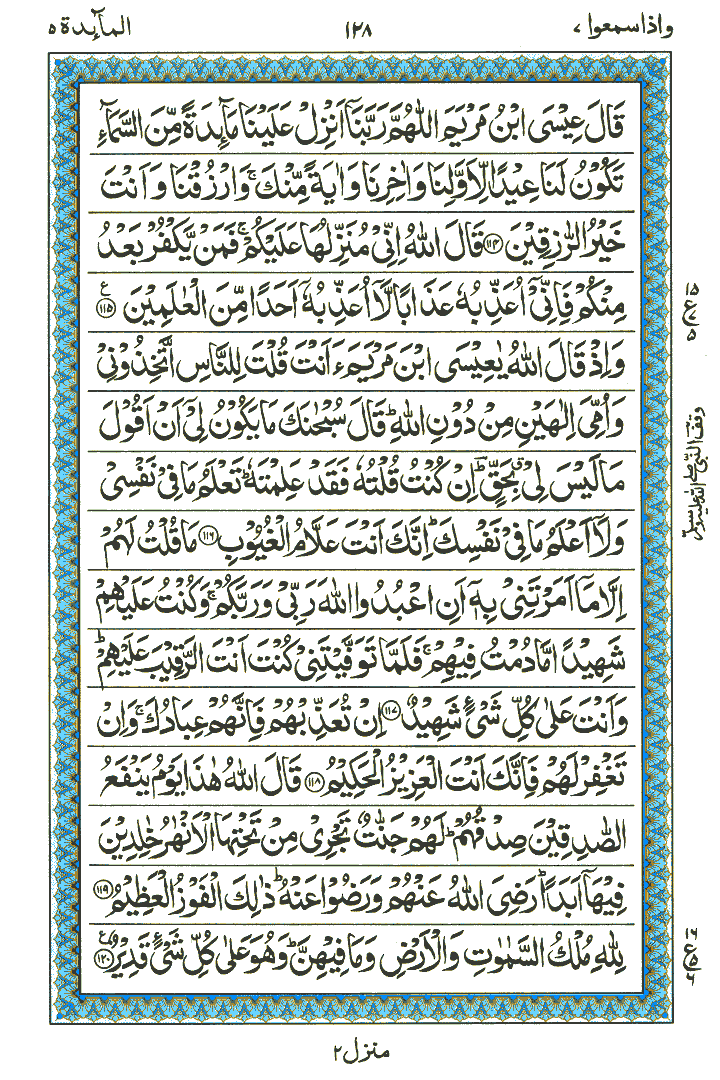 واذاسمعوا ٧ ١٢٨ المآىِٕدة ٥
قَالَ عِيْسَى ابْنُ مَرْيَمَ اللّٰهُمَّ رَبَّنَاۤ اَنْزِلْ عَلَيْنَا مَآىِٕدَةً مِّنَ السَّمَآءِ
تَكُوْنُ لَنَا عِيْدًا لِّاَوَّلِنَا وَاٰخِرِنَا وَاٰيَةً مِّنْكَ ۚ وَارْزُقْنَا وَاَنْتَ
خَيْرُ الرّٰزِقِيْنَ ﴿١١٤﴾ قَالَ اللّٰهُ اِنِّيْ مُنَزِّلُهَا عَلَيْكُمْ ۚ فَمَنْ يَّكْفُرْ بَعْدُ
مِنْكُمْ فَاِنِّيْۤ اُعَذِّبُهٗ عَذَابًا لَّاۤ اُعَذِّبُهٗۤ اَحَدًا مِّنَ الْعٰلَمِيْنَ ﴿١١٥﴾ ع
وَاِذْ قَالَ اللّٰهُ يٰعِيْسَى ابْنَ مَرْيَمَ ءَاَنْتَ قُلْتَ لِلنَّاسِ اتَّخِذُوْنِيْ
وَاُمِّيَ اِلٰهَيْنِ مِنْ دُوْنِ اللّٰهِ ؕ قَالَ سُبْحٰنَكَ مَا يَكُوْنُ لِيْۤ اَنْ اَقُوْلَ
مَا لَيْسَ لِيْ ۗ بِحَقٍّ ؕ اِنْ كُنْتُ قُلْتُهٗ فَقَدْ عَلِمْتَهٗ ؕ تَعْلَمُ مَا فِيْ نَفْسِيْ
وَلَاۤ اَعْلَمُ مَا فِيْ نَفْسِكَ ؕ اِنَّكَ اَنْتَ عَلَّامُ الْغُيُوْبِ ﴿١١٦﴾ مَا قُلْتُ لَهُمْ
اِلَّا مَاۤ اَمَرْتَنِيْ بِهٖۤ اَنِ اعْبُدُوا اللّٰهَ رَبِّيْ وَرَبَّكُمْ ۚ وَكُنْتُ عَلَيْهِمْ
شَهِيْدًا مَّا دُمْتُ فِيْهِمْ ۚ فَلَمَّا تَوَفَّيْتَنِيْ كُنْتَ اَنْتَ الرَّقِيْبَ عَلَيْهِمْ ؕ
وَاَنْتَ عَلٰى كُلِّ شَيْءٍ شَهِيْدٌ ﴿١١٧﴾ اِنْ تُعَذِّبْهُمْ فَاِنَّهُمْ عِبَادُكَ ۚ وَاِنْ
تَغْفِرْ لَهُمْ فَاِنَّكَ اَنْتَ الْعَزِيْزُ الْحَكِيْمُ ﴿١١٨﴾ قَالَ اللّٰهُ هٰذَا يَوْمُ يَنْفَعُ
الصّٰدِقِيْنَ صِدْقُهُمْ ؕ لَهُمْ جَنّٰتٌ تَجْرِيْ مِنْ تَحْتِهَا الْاَنْهٰرُ خٰلِدِيْنَ
فِيْهَاۤ اَبَدًا ؕ رَضِيَ اللّٰهُ عَنْهُمْ وَرَضُوْا عَنْهُ ؕ ذٰلِكَ الْفَوْزُ الْعَظِيْمُ ﴿١١٩﴾
لِلّٰهِ مُلْكُ السَّمٰوٰتِ وَالْاَرْضِ وَمَا فِيْهِنَّ ؕ وَهُوَ عَلٰى كُلِّ شَيْءٍ قَدِيْرٌ ﴿١٢٠﴾ ع
وقف النبي صلى الله عليه وسلم
منزل ٢